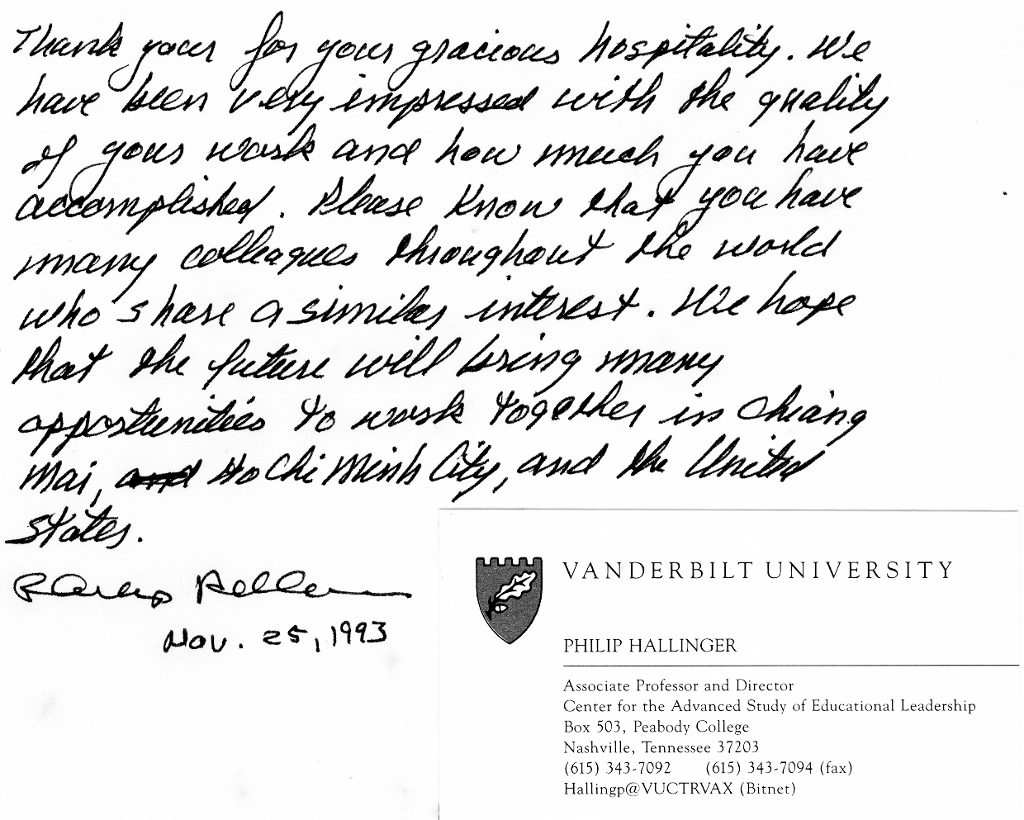 Thank your for your gracious hospitality. We
have been very impressed with the quality
of your work and how much you have
accomplished. Please know that you have
many colleagues throughout the world
who share a similar interest. We hope
that the future will bring many
opportunities to work together in Chiang
Mai, and Ho Chi Minh City, and the United
States.
Philip Hallinger
Nov. 25, 1993
VANDERBILT UNIVERSITY
PHILIP HALLINGER
Associate Professor and Director
Center for the Advanced Study of Educational Leadership
Box 503, Peabody College
Nashville, Tennessee 37203
(615) 343-7092 (615) 343-7094 (fax)
Hallingp@VUCTRVAX (Bitnet)